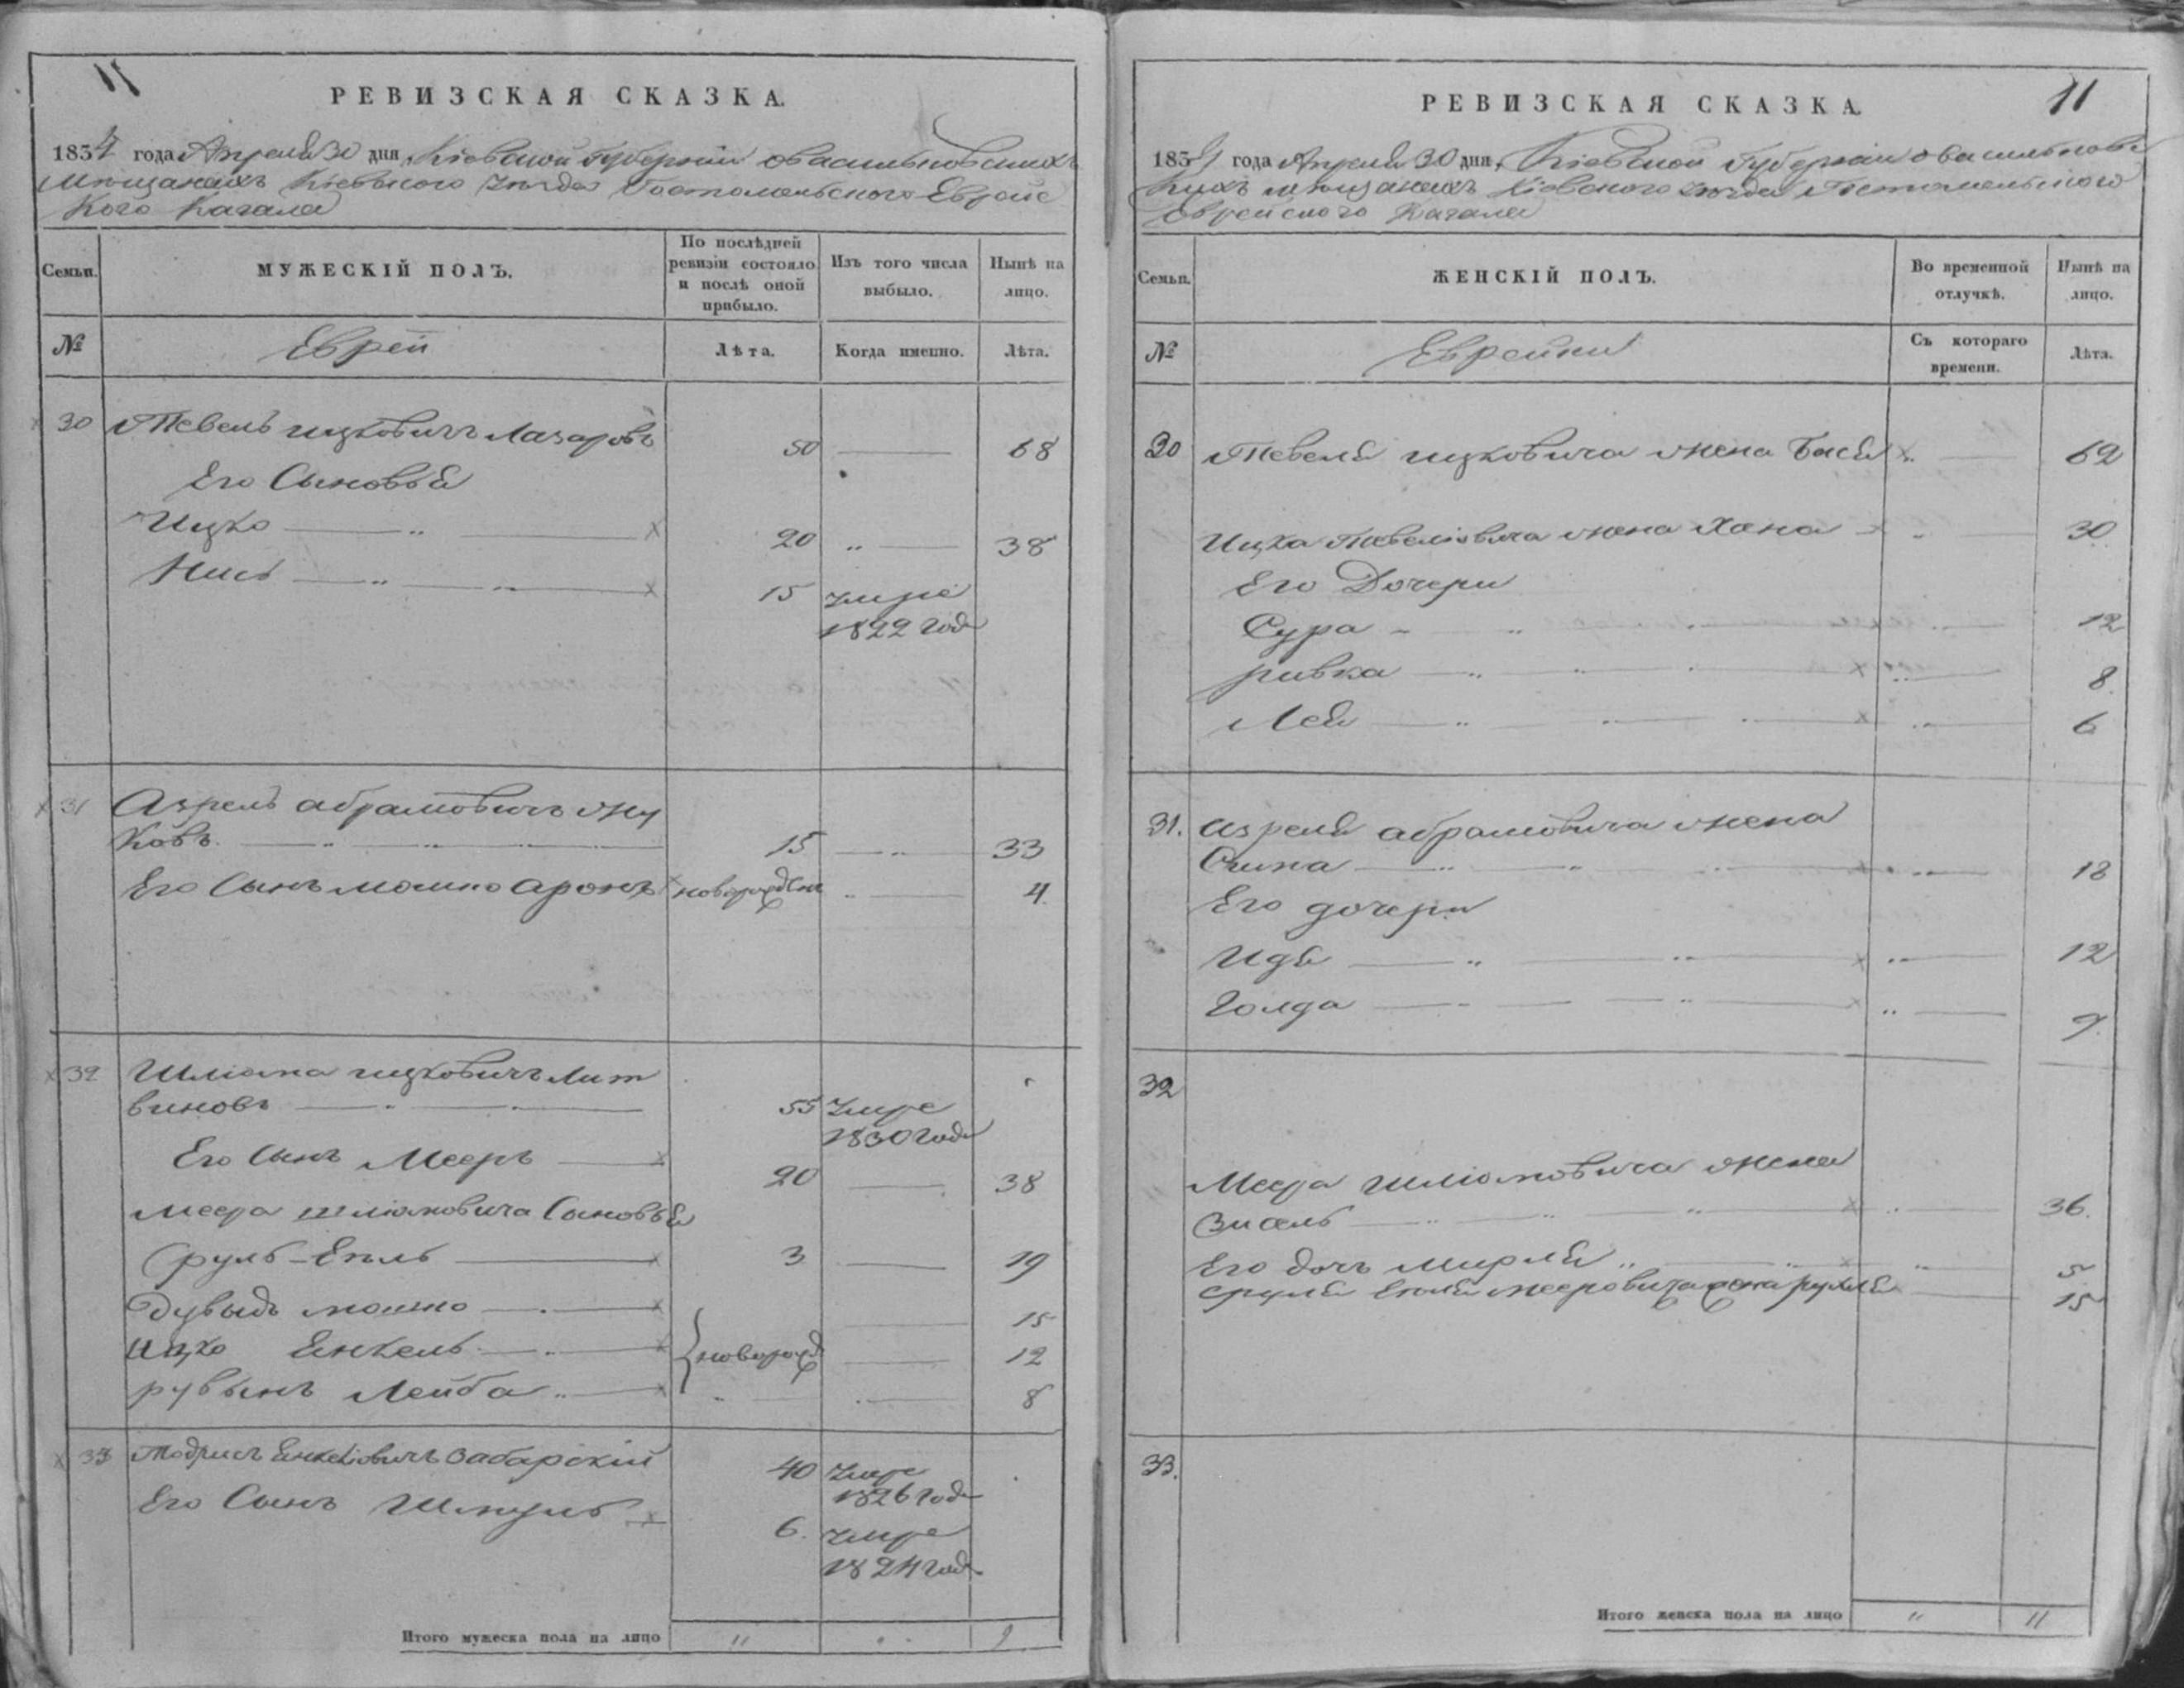 11
РЕВИЗСКАЯ СКАЗКА.
1834 года Апреля 30 дня, Кіевской Губерніи о васильковскихъ
Мещанахъ Кіевского уезда Гостомельского Еврейс
кого Кагала
Семьи.
МУЖЕСКІЙ ПОЛЪ.
По послѣдней ревизіи состояло и послѣ оной прибыло.
Изъ того числа выбыло.
Нынѣ на лицо.
№
Еврей
Лѣта.
Когда именно.
Лѣта.
30 Тевель ицковичъ Лазаровъ 50 — 68
Его Сыновья
Ицко — " — х 20 " — 38
Нись — " — " — х 15 умре
1822 года
31 Азрель абрамовичъ жу
ковъ — " — 15 — " — 33
Его Сынъ мошко аронъ х новорожден " — 4
32 Шліома ицковичъ Лит
виновъ — " — 55 умре
1830 года
Его Сынъ Мееръ — х 20 — 38
Меера шліомовича Сыновья
Сруль-Екель — х 3 — 19
Дувыдъ мошко — х — 15
Ицко Енкель — " — х новорожд — 12
рувынъ Лейба " — х " — 8
33 Тодрисъ Енкеліовичъ Забарскій 40 умре
1826 года
Его Сынъ Шмуль х 6. умре
1824 года
Итого мужеска пола на лицо " " 9
11
РЕВИЗСКАЯ СКАЗКА.
1834 года Апреля 30 дня, Кіевской Губерніи о васильковс
кихъ мещанахъ Кіевского уезда Гостомельского
Еврейского Кагала
Семьи.
ЖЕНСКІЙ ПОЛЪ.
Во временной отлучкѣ.
Нынѣ на лицо.
№
Еврейки
Съ котораго времени.
Лѣта.
30 Тевеля ицковича жена Бася х " — 62
Ицка Тевеліовича жена Хана — х " — 30
Его Дочери
Сура — " — 12
ривка — " — х " — 8
Лея — " — х " — 6
31. Азреля абрамовича жена
— " — 18
Его дочери
Идя — " — х " — 12
Голда — " — х " — 9
32
Меера шліомовича жена
Зисель — " — х " — 36.
Его дочь Мирля " — х " — 5
Сруля Екеля мееровича жена рухля — 15
33.
Итого женска пола на лицо " 11